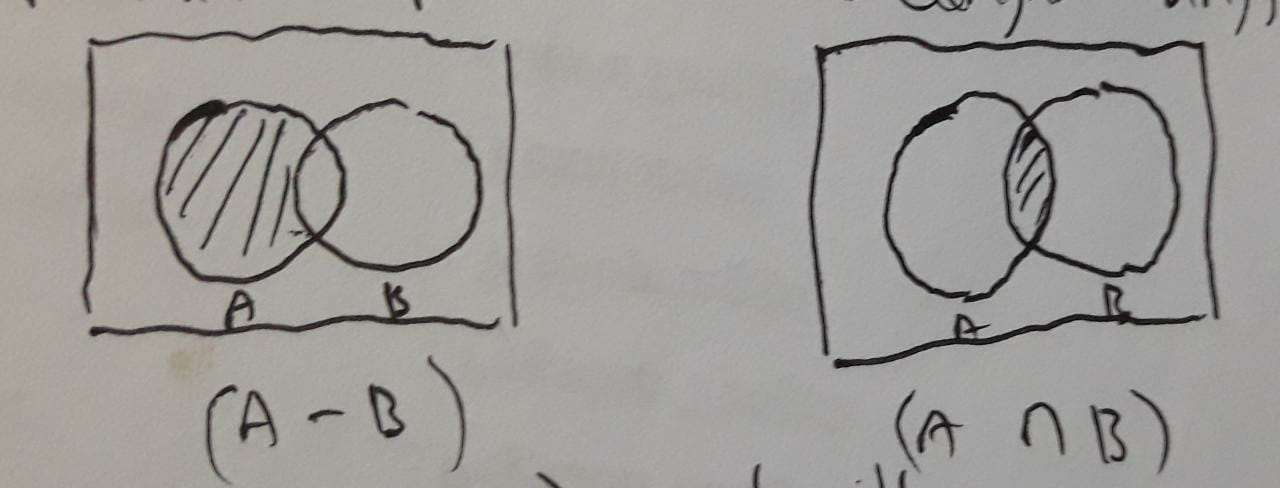 A B
A B
(A - B)
(A ∩ B)